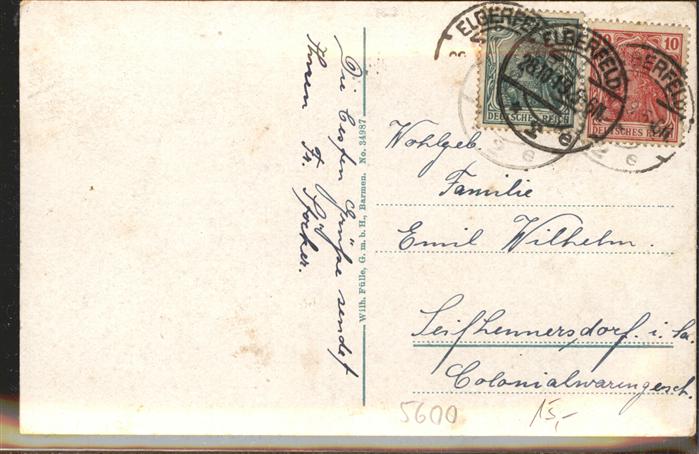 Die besten Grüße sendet
Ihnen Fr.
Wilh. Fülle, G. m. b. H., Barmen. No. 34987
ELBERFELD
ELBERFELD
ERFELD
28.10.19
e
e
e
DEUTSCHES REICH
10
DEUTSCHES REICH
Wohlgeb.
Familie
Emil Wilhelm.
Seifhennersdorf. i. Sa.
Colonialwarengesch.
5600
15,-